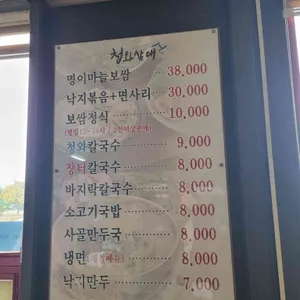 청와삼대
명이마늘보쌈 38,000
낙지볶음+면사리 30,000
보쌈정식 10,000
청와칼국수 9,000
장터칼국수 8,000
바지락칼국수 8,000
소고기국밥 8,000
사골만두국 8,000
냉면 8,000
낙지만두 7,000